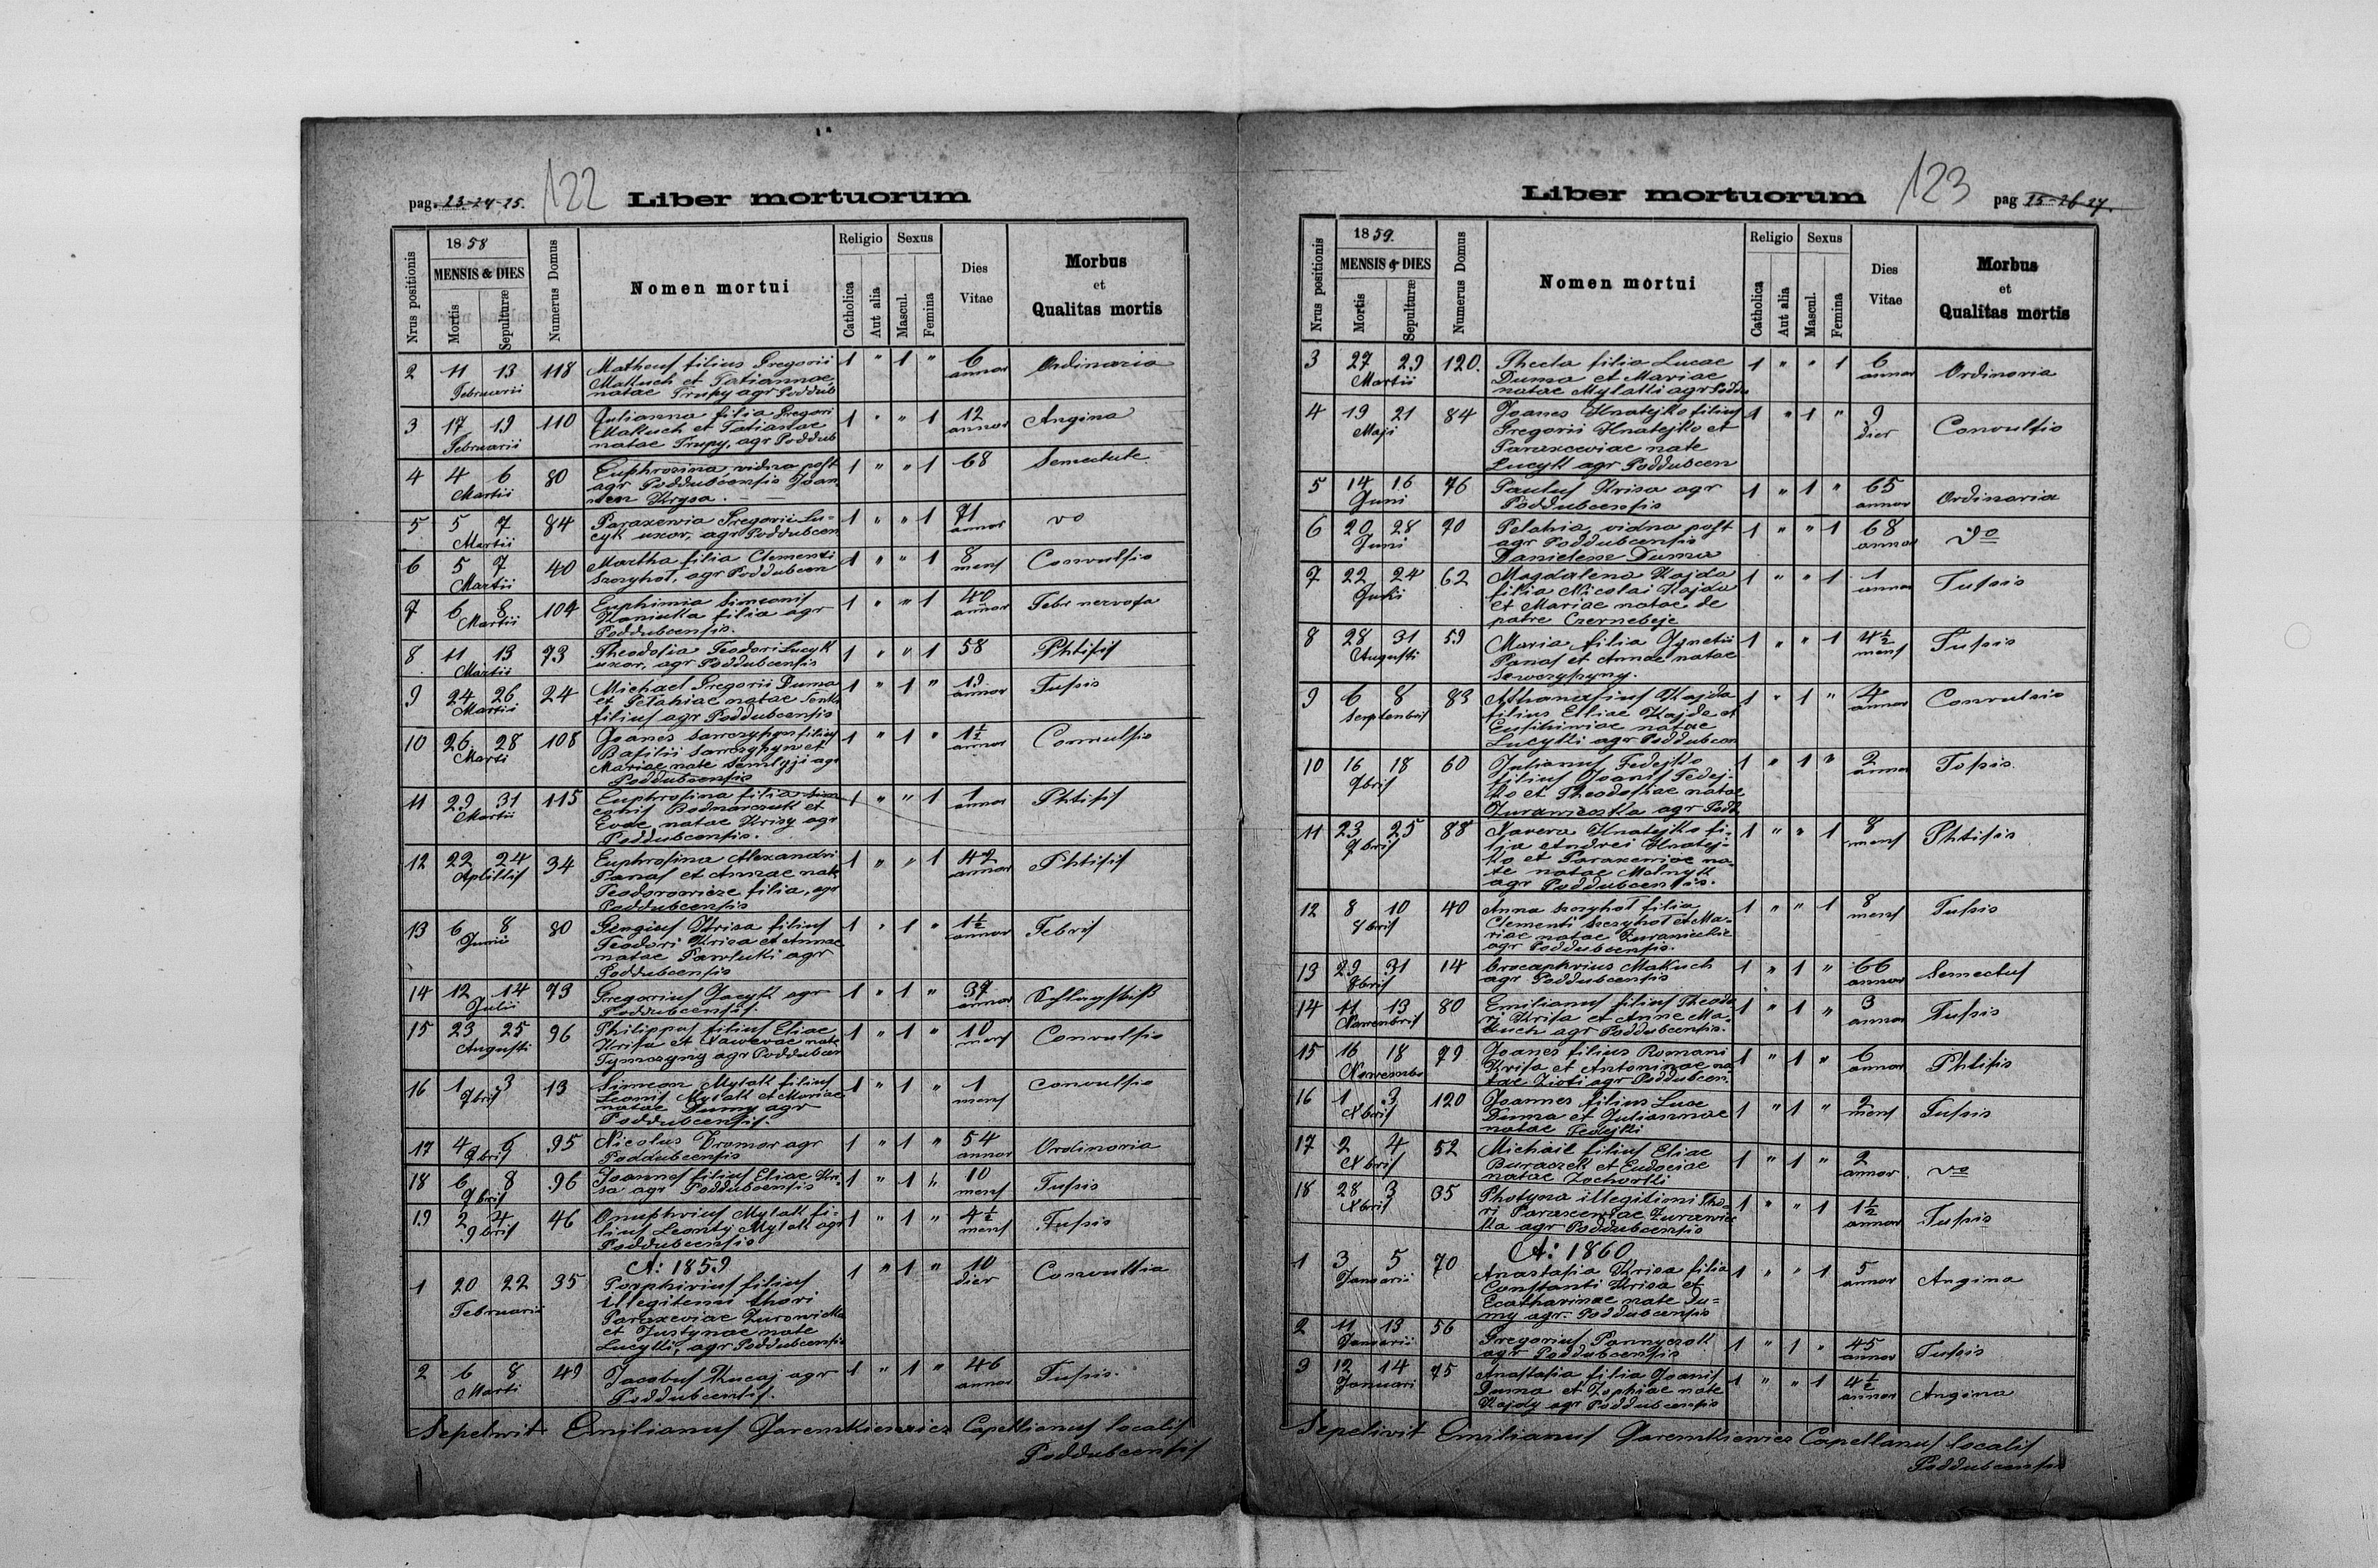 pag. 23-24-25. 122 Liber mortuorum
1858
Nrus positionis
MENSIS & DIES
Mortis
Sepulturæ
Numerus Domus
Nomen mortui
Religio
Catholica
Aut alia
Sexus
Mascul.
Femina
Dies
Vitae
Morbus
et
Qualitas mortis
2 11 13 118 Matheus filius Gregorii 1 " 1 " 6 Ordinaria
Februarii Makuch et Tatiannae annor
natae Trupy agr Poddub
3 17 19 110 Julianna filia Gregori 1 " " 1 12 Angina
Februarii Makuch et Tatianae annor
natae Trupy, agr Poddub
4 4 6 80 Euphrosina vidua post 1 " " 1 68 Senectute
Martii agr Poddubcensis Joan
Krysa.
5 5 7 84 Paraxewia Gregorii Lu- 1 " " 1 71
Martii cyk uxor, agr Poddubcen annor
6 5 7 40 Martha filia Clementi 1 " " 1 8 Convulsio
Martii agr Poddubcen mens
7 6 8 104 Euphimia Simeonis 1 " " 1 40 Febr nervosa
Martii filia agr annor
Poddubcensis.
8 11 13 73 Theodosia Teodori Lucyk 1 " " 1 58 Phtisis
Martii uxor, agr Poddubcensis
9 24 26 24 Michael Gregorii Duma 1 " 1 " 19 Tussis
Martii et Pelahiae natae annor
filius agr Poddubcensis
10 26 28 108 Joanes filius 1 " 1 " 1½ Convulsio
Marti Basilii et annor
Mariae nate agr
Poddubcensis
11 29 31 115 Euphrosina filia Sim 1 " " 1 1 Phtisis
Martii eonis Bodnarczuk et annor
Evae natae Krisy agr
Poddubcensis.
12 22 24 34 Euphrosina Alexandri 1 " " 1 42 Phtisis
Aprillis Panas et Annae nate annor
Teodorowicze filia, agr
Poddubcensis
13 6 8 80 Krisa filius 1 " 1 " 1½ Febris
Junii Teodori Krisa et Annae annor
natae Pawluki agr
Poddubcensis
14 12 14 73 Gregorius Jacyk agr 1 " 1 " 37
Julii Poddubcensis. annor
15 23 25 96 Philippus filius Eliae 1 " 1 " 10 Convulsio
Augusti Krisa et nate mens
Tymczyny agr Poddubcen
16 1 3 13 Simeon Mylak filius 1 " 1 " 1 Convulsio
7bris Leonis Mylak et Mariae mens
natae Dumy agr
Poddubcensis.
17 4 6 95 Nicolus Kromar agr 1 " 1 " 54 Ordinoria
7bris Poddubcensis annor
18 6 8 96 Joannes filius Eliae Kri- 1 " 1 " 10 Tussis
7bris sa agr Poddubcensis mens
19 2 4 46 Onuphrius Mylak fi- 1 " 1 " 4½ Tussis
9bris lius Leonty Mylak agr mens
Poddubcensis
A: 1859
1 20 22 35 Porphirius filius 1 " 1 " 10 Convultia
Februarii illegitemi thori dier
Paraxeviae
et Justynae nate
Lucykli, agr Poddubcensis
2 6 8 49 Jacobus Kucaj agr 1 " 1 " 46 Tussis.
Marti Poddubcensis. annor
Sepelivit Emilianus Jaremkiewicz Capellianus localis
Poddubcensis
Liber mortuorum 123 pag 25-26-27.
1859.
Nrus positionis
MENSIS & DIES
Mortis
Sepulturæ
Numerus Domus
Nomen mortui
Religio
Catholica
Aut alia
Sexus
Mascul.
Femina
Dies
Vitae
Morbus
et
Qualitas mortis
3 27 29 120. Thecla filia Lucae 1 " " 1 6 Ordinoria
Martii Duma et Mariae annor
natae Mylakli agr Poddu
4 19 21 84 Joanes Hnatejko filius 1 " 1 " 9 Convulsio
Maji Gregorii Hnatejko et dier
Paraxceviae nate
Lucyk agr Poddubcen
5 14 16 76 Paulus Krisa agr 1 " 1 " 65 Ordinaria
Juni Poddubcensis annor
6 20 28 70 Pelahia vidua post 1 " " 1 68 do
Juni agr Poddubcensis annor
Danielene Duma
7 22 24 62 Magdalena Kajda 1 " " 1 1 Tussis
filia Nicolai Kajda annor
et Mariae natae de
patre Czernebeje
8 28 31 59 Maria filia Ignetii 1 " " 1 4½ Tussis
Augusti Panas et Annae natae mens
9 6 8 83 Athanasius Kajda 1 " 1 " 4 Convulsio
Septenbris filius Elliae Kajda et annor
natae
Lucykli agr Poddubcen
10 16 18 60 Julianus Fedejko 1 " 1 " 2 Tossis
7bris filius Joanis Fedej- annor
ko et Theodosiae natae
agr Podd
11 23 25 88 Xavera Hnatejko fi- 1 " " 1 8 Phtisis
7bris lia Andrei Hnatej- mens
ko et Paraxeviae na-
te natae Melnyk
agr Poddubcensis.
12 8 10 40 Anna filia 1 " " 1 8 Tussis
8bris Clementi et Ma- mens
riae natae
agr Poddubcensis.
13 29 31 14 Makuch 1 " 1 " 66 Senectus
8bris agr Poddubcensis annor
14 11 13 80 Emilianus filius Theodo 1 " 1 " 3 Tussis
Novenbris ri Krisa et Anne Ma- annor
kuch agr Poddubcensis.
15 16 18 79 Joanes filius Romani 1 " 1 " 6 Phtisis
Novembr Krisa et Antoninae na annor
tae agr Poddubcen.
16 1 3 120 Joannes filius Luce 1 " 1 " 2 Tussis
Xbris Duma et Juliannae mens
natae Fedejki
17 2 4 52 Michail filius Eliae 1 " 1 " 2
Xbris Buraczek et Eudociae annor
natae
18 28 3 35 Photyna illegitimi Tho- 1 " " 1 1½ Tussis
Xbris ri Paraxeviae Zurawiec annor
ka agr Poddubcensis
A: 1860
1 3 5 70 Anastasia Krisa filia 1 " " 1 5 Angina
Januarii Constanti Krisa et annor
Ecatharinae nate Du=
my agr. Poddubcensis
2 11 13 56 Gregorius 1 " 1 " 45 Tussis
Januarii agr Poddubcensis annor
3 12 14 75 Anastasia filia Joanis 1 " " 1 4½ Angina
Januari Duma et Zophiae nate annor
Kajdy agr Poddubcensis
Sepelivit Emilianus Jaremkiewicz Capellanus localis
Poddubcensis